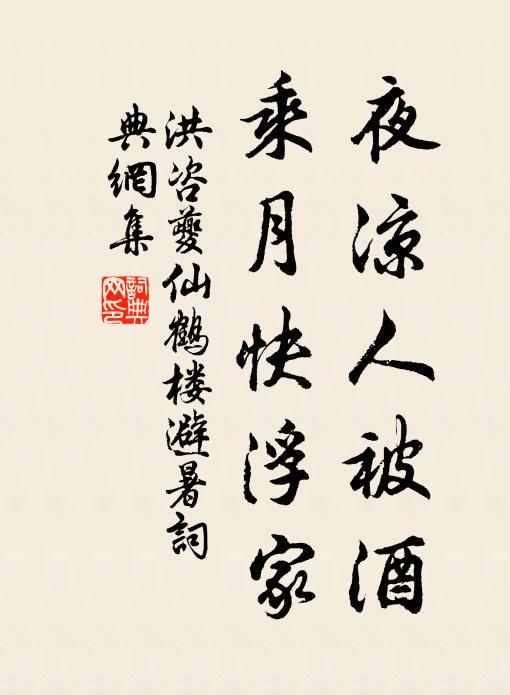 夜凉人被酒
乘月快浮家
洪咨夔仙鹤楼避暑詞
典網集
詞典网印